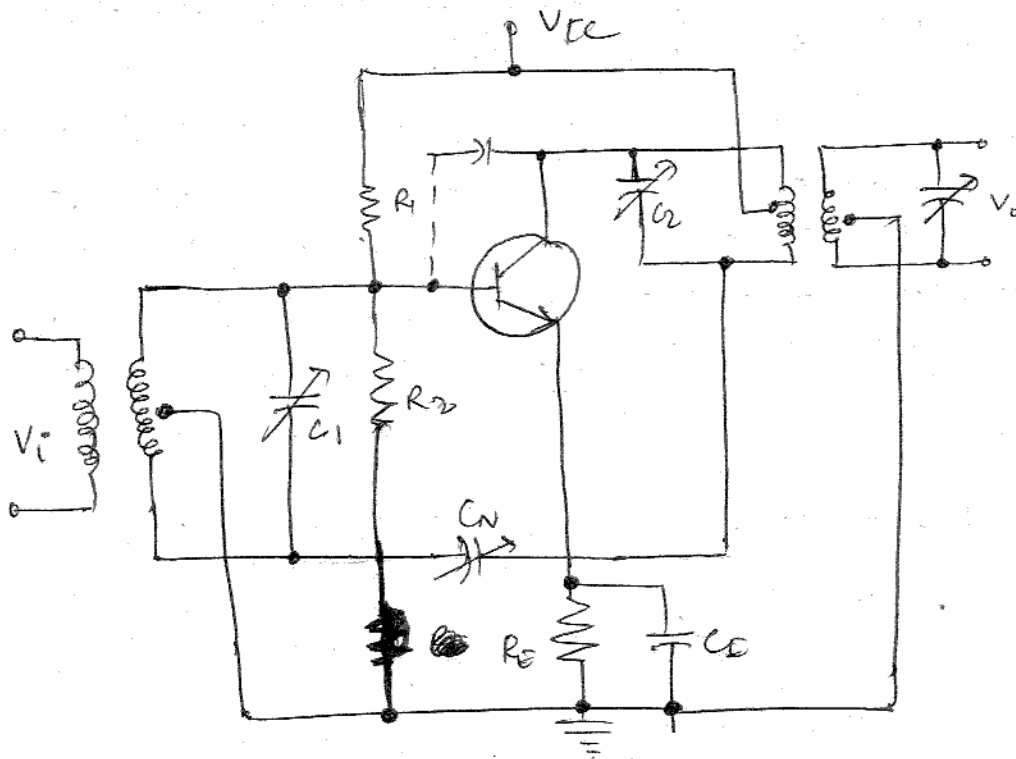 Vcc
R1
C2
Vo
R2
C1
Vi
CN
RE
CE